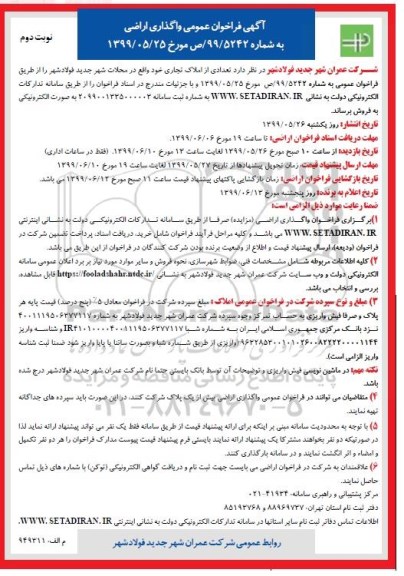 نوبت دوم
آگهی فراخوان عمومی واگذاری اراضی
به شماره ۹۹/۵۲۴۲/ص مورخ ۱۳۹۹/۰۵/۲۵
شرکت عمران شهر جدید فولادشهر در نظر دارد تعدادی از املاک تجاری خود واقع در محلات شهر جدید فولادشهر را از طریق
فراخوان عمومی به شماره ۹۹/۵۲۴۲/ص مورخ ۱۳۹۹/۰۵/۲۵ و با جزئیات مندرج در اسناد فراخوان را از طریق سامانه تدارکات
الکترونیکی دولت به نشانی WWW.SETADIRAN.IR به شماره ثبت سامانه ۲۰۹۹۰۰۱۳۳۵۰۰۰۰۰۳ به صورت الکترونیکی
به فروش برساند.
تاریخ انتشار: روز یکشنبه ۱۳۹۹/۰۵/۲۶
مهلت دریافت اسناد فراخوان اراضی: تا ساعت ۱۹ مورخ ۱۳۹۹/۰۶/۰۶
تاریخ بازدید: از ساعت ۱۰ صبح مورخ ۱۳۹۹/۰۵/۲۶ لغایت ساعت ۱۳ مورخ ۱۳۹۹/۰۶/۱۰. (فقط در ساعات اداری)
مهلت ارسال پیشنهاد قیمت: زمان تحویل پیشنهادها از تاریخ ۱۳۹۹/۰۵/۲۷ لغایت ساعت ۱۹ مورخ ۱۳۹۹/۰۶/۱۰
تاریخ بازگشایی فراخوان اراضی: زمان بازگشایی پاکتهای پیشنهاد قیمت ساعت ۱۱ صبح مورخ ۱۳۹۹/۰۶/۱۲ می باشد.
تاریخ اعلام به برنده: روز پنجشنبه مورخ ۱۳۹۹/۰۶/۱۳
ضمنا رعایت موارد ذیل الزامی است:
۱)برگزاری فراخوان واگذاری اراضی (مزایده) صرفا از طریق سامانه تدارکات الکترونیکی دولت به نشانی اینترنتی
WWW.SETADIRAN.IR می باشد و کلیه مراحل فرآیند فراخوان شامل خرید، دریافت اسناد، پرداخت تضمین شرکت در
فراخوان (ودیعه)، ارسال پیشنهاد قیمت و اطلاع از وضعیت برنده بودن شرکت کنندگان در فراخوان از این طریق می باشد.
۲) کلیه اطلاعات مربوطه شامل مشخصات فنی، ضوابط شهرسازی، نحوه فروش و سایر موارد مورد نیاز در برد اعلان عمومی سامانه
الکترونیکی دولت و وب سایت شرکت عمران شهر جدید فولادشهر به نشانی https://fooladshahr.ntdc.ir/ قابل مشاهده،
بررسی و انتخاب می باشد.
۳) مبلغ و نوع سپرده شرکت در فراخوان عمومی املاک: مبلغ سپرده شرکت در فراخوان معادل ۵٪ (پنج درصد) قیمت پایه هر
پلاک و صرفا فیش واریزی به حساب تمرکز وجوه سپرده شرکت عمران شهر جدید فولادشهر به شماره ۴۰۰۱۱۱۹۵۰۶۳۷۷۱۱۷
نزد بانک مرکزی جمهوری اسلامی ایران به شماره شبا IR۴۱۰۱۰۰۰۰۴۰۰۱۱۱۹۵۰۶۳۷۷۱۱۷ و شناسه واریز
(واریز از طریق شماره شبا و بصورت ساتنا یا پایا واریز شود ضمنا ثبت شناسه
واریز الزامی است).
نکته مهم: در ماشین نویسی فیش واریزی و توضیحات آن توسط بانک بایستی حتما نام شرکت عمران شهر جدید فولادشهر درج شده
باشد.
۴) متقاضیان می توانند در فراخوان عمومی واگذاری اراضی بیش از یک پلاک شرکت کنند. در این صورت باید سپرده های جداگانه
تهیه نمایند.
۵) با توجه به محدودیت سامانه مبنی بر اینکه برای ارائه پیشنهاد قیمت از طریق سامانه فقط یک نفر می تواند پیشنهاد ارائه نماید لذا
در صورتیکه دو نفر بخواهند مشترکا یک پیشنهاد ارائه نمایند بایستی فرم پیشنهاد قیمت پیوست مدارک فراخوان را هر دو نفر تکمیل
و امضاء و اثر انگشت نمایند و در سامانه بارگذاری کنند.
۶) علاقمندان به شرکت در فراخوان اراضی می بایست جهت ثبت نام و دریافت گواهی الکترونیکی (توکن) با شماره های ذیل تماس
حاصل نمایند.
مرکز پشتیبانی و راهبری سامانه: ۴۱۹۳۴-۰۲۱
دفتر ثبت نام استان تهران: ۸۸۹۶۹۷۳۷ و ۸۵۱۹۳۷۶۸
اطلاعات تماس دفاتر ثبت نام سایر استانها در سامانه تدارکات الکترونیکی دولت به نشانی اینترنتی WWW.SETADIRAN.IR.
روابط عمومی شرکت عمران شهر جدید فولادشهر
م الف: ۹۴۹۳۱۱
پایگاه اطلاع رسانی مناقصه و مزایده
۰۲۱-۸۸۳۴۹۶۷۰-۵